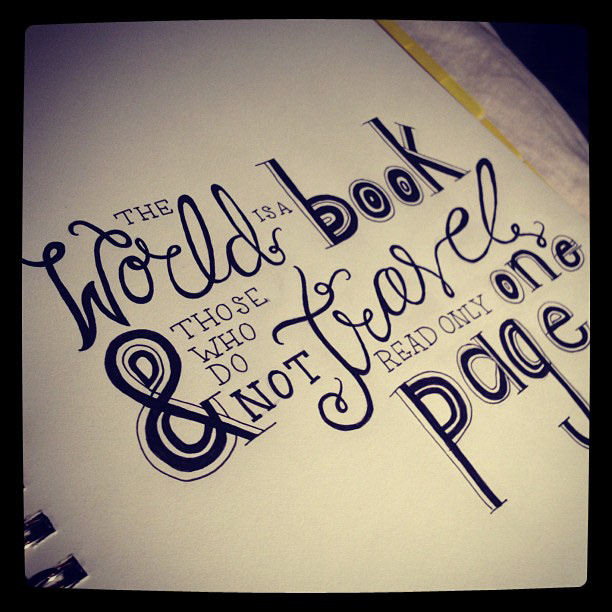 THE World IS A book
& THOSE WHO DO NOT travel
READ ONLY one page